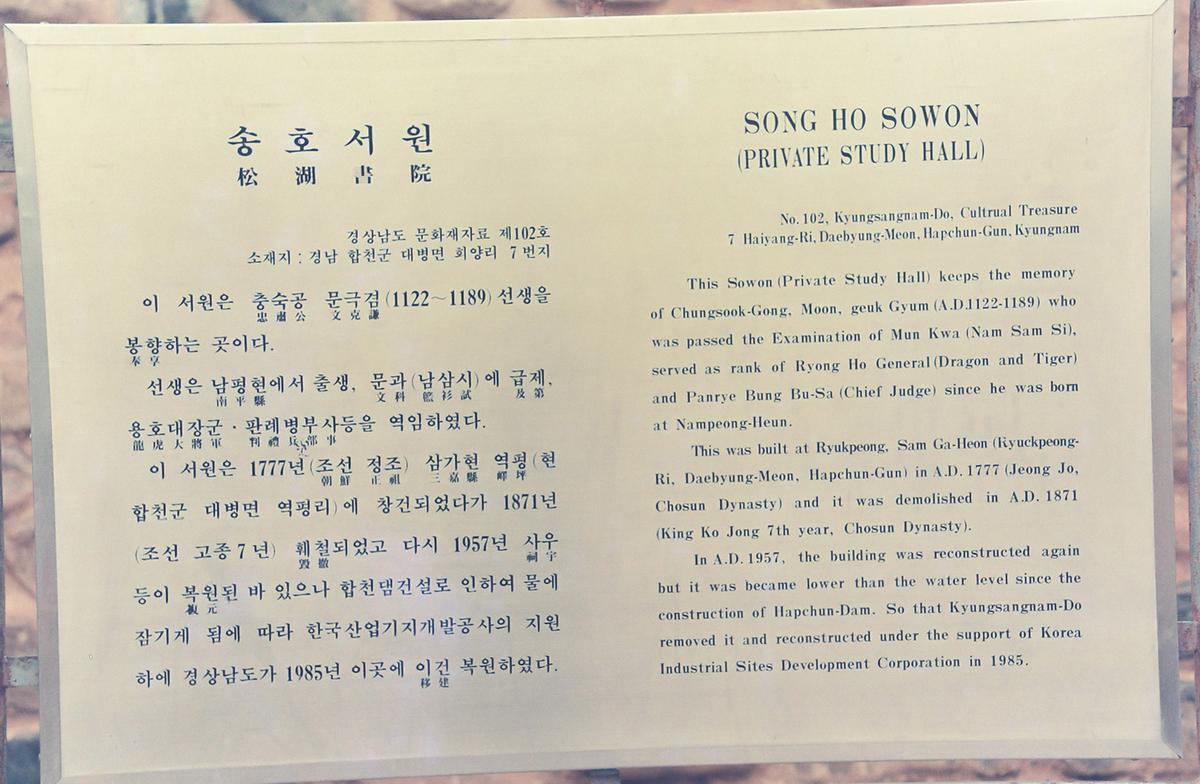 송호서원
松湖書院
경상남도 문화재자료 제102호
소재지 : 경남 합천군 대병면 회양리 7번지
이 서원은 충숙공 문극겸(1122~1189) 선생을
忠肅公 文克謙
봉향하는 곳이다.
奉享
선생은 남평현에서 출생, 문과(남삼시)에 급제,
南平縣 文科 藍衫試 及第
용호대장군·판례병부사등을 역임하였다.
龍虎大將軍 判禮兵部事
이 서원은 1777년(조선 정조) 삼가현 역평(현
朝鮮 正祖 三嘉縣 嶧坪
합천군 대병면 역평리)에 창건되었다가 1871년
(조선 고종7년) 훼철되었고 다시 1957년 사우
毁撤 祠宇
등이 복원된 바 있으나 합천댐건설로 인하여 물에
復元
잠기게 됨에 따라 한국산업기지개발공사의 지원
하에 경상남도가 1985년 이곳에 이건 복원하였다.
移建
SONG HO SOWON
(PRIVATE STUDY HALL)
No. 102, Kyungsangnam-Do, Cultrual Treasure
7 Haiyang-Ri, Daebyung-Meon, Hapchun-Gun, Kyungnam
This Sowon (Private Study Hall) keeps the memory
of Chungsook-Gong, Moon, geuk Gyum (A.D.1122-1189) who
was passed the Examination of Mun Kwa (Nam Sam Si),
served as rank of Ryong Ho General (Dragon and Tiger)
and Panrye Bung Bu-Sa (Chief Judge) since he was born
at Nampeong-Heun.
This was built at Ryukpeong, Sam Ga-Heon (Ryuckpeong-
Ri, Daebyung-Meon, Hapchun-Gun) in A.D. 1777 (Jeong Jo,
Chosun Dynasty) and it was demolished in A.D. 1871
(King Ko Jong 7th year, Chosun Dynasty).
In A.D. 1957, the building was reconstructed again
but it was became lower than the water level since the
construction of Hapchun-Dam. So that Kyungsangnam-Do
removed it and reconstructed under the support of Korea
Industrial Sites Development Corporation in 1985.